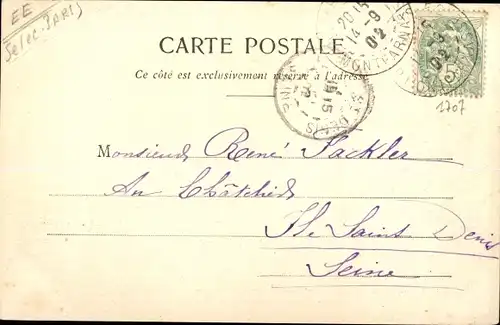 EE
CARTE POSTALE
Ce côté est exclusivement réservé à l'adresse
MONTPARNASSE
14 - 9
02
1707
Monsieur René Sackler
Au Châtelied
Ile Saint Denis
Seine